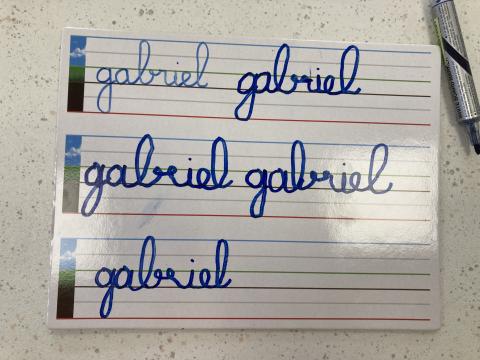 gabriel gabriel
gabriel gabriel
gabriel